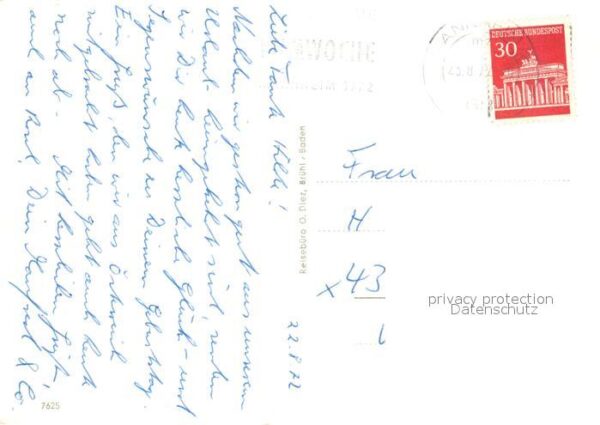 Liebe Tante Hilde!
Nachdem wir gestern gut aus unserem
Urlaub heimgekehrt sind, senden
wir Dir heute herzliche Glück- und
Segenswünsche zu Deinem Geburtstag.
Ein Gruß, den wir aus Österreich
mitgebracht haben geht auch heute
noch ab. Mit herzlichen Grüßen,
auch an Karl, Dein Manfred & Co.
22.8.72
7625
Reisebüro O. Diez, Brühl / Baden
WOCHE
1972
DEUTSCHE BUNDESPOST
30
Frau
H
x 43
L
privacy protection
Datenschutz